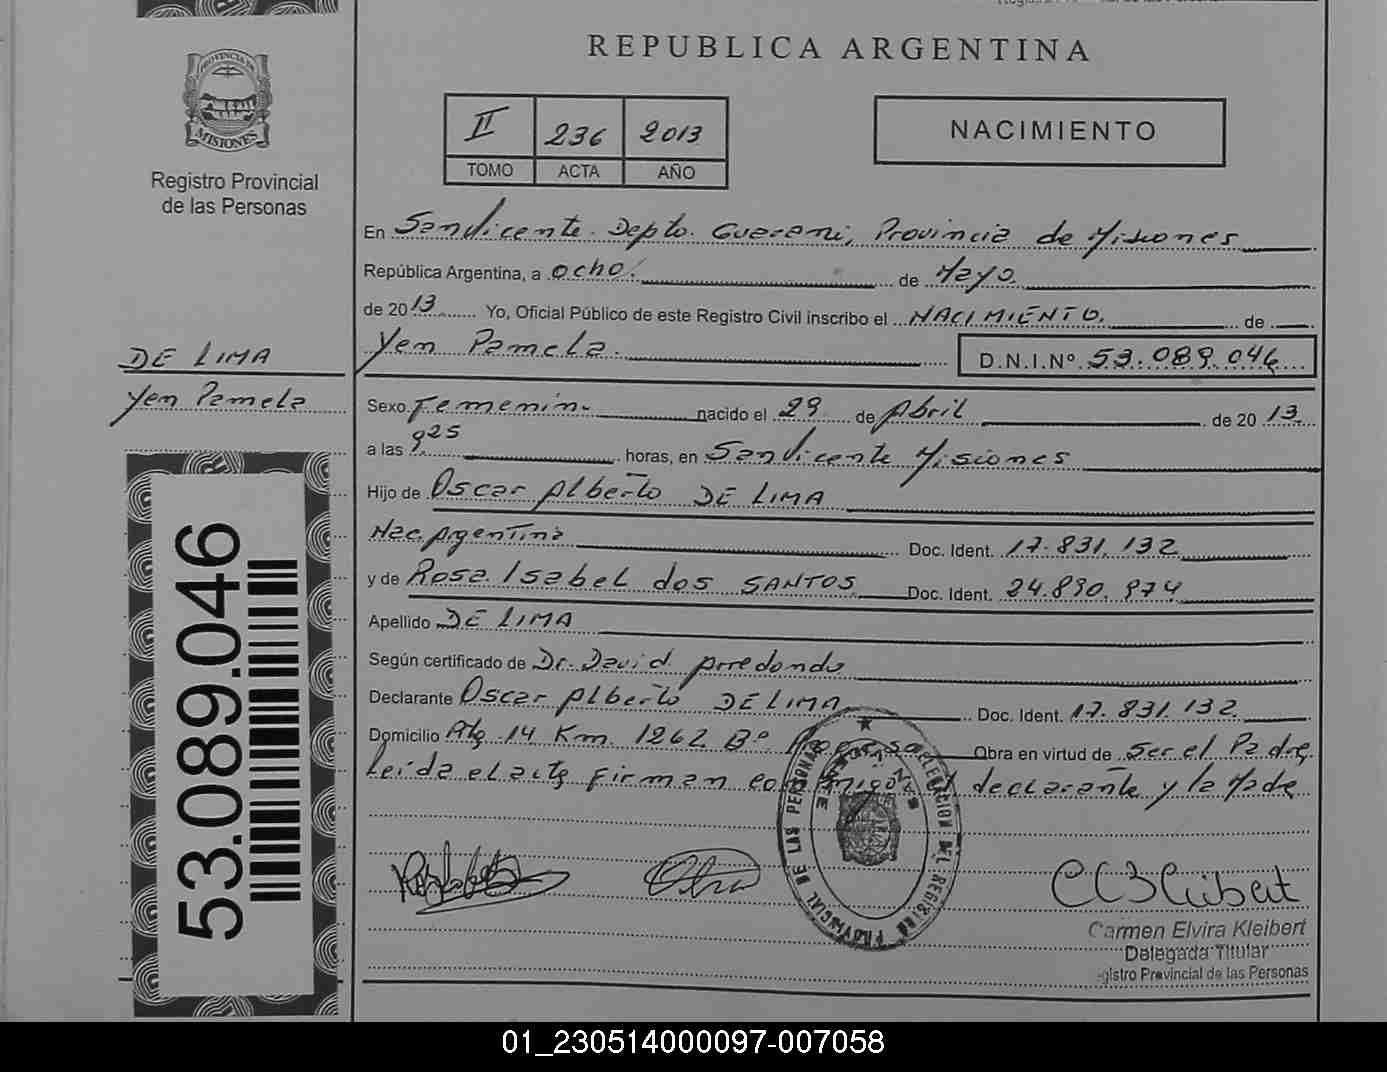 REPUBLICA ARGENTINA
PROVINCIA DE
MISIONES
Registro Provincial
de las Personas
II 236 2013
TOMO ACTA AÑO
NACIMIENTO
En San Vicente Depto. Guarani, Provincia de Misiones
República Argentina, a ocho de Mayo
de 2013 Yo, Oficial Público de este Registro Civil inscribo el NACIMIENTO de
Yen Pamela D.N.I.Nº 53.089.046
DE LIMA
Yen Pamela
Sexo Femenin. nacido el 29 de Abril de 2013
a las 9.25 horas, en San Vicente Misiones
Hijo de Oscar Alberto DE LIMA
Nac. Argentina Doc. Ident. 17.831.132
y de Rosa Isabel dos SANTOS Doc. Ident. 24.890.974
Apellido DE LIMA
Según certificado de Dr. David Arredondo
Declarante Oscar Alberto DE LIMA Doc. Ident. 17.831.132
Domicilio Rta 14 Km. 1262 Bº Obra en virtud de Ser el Padre
Leida el acta firman conmigo el declarante y la Made
53.089.046
SAN VICENTE
DELEGACION DEL REGISTRO PROVINCIAL DE LAS PERSONAS
Carmen Elvira Kleibert
Delegada Titular
gistro Provincial de las Personas
01_230514000097-007058